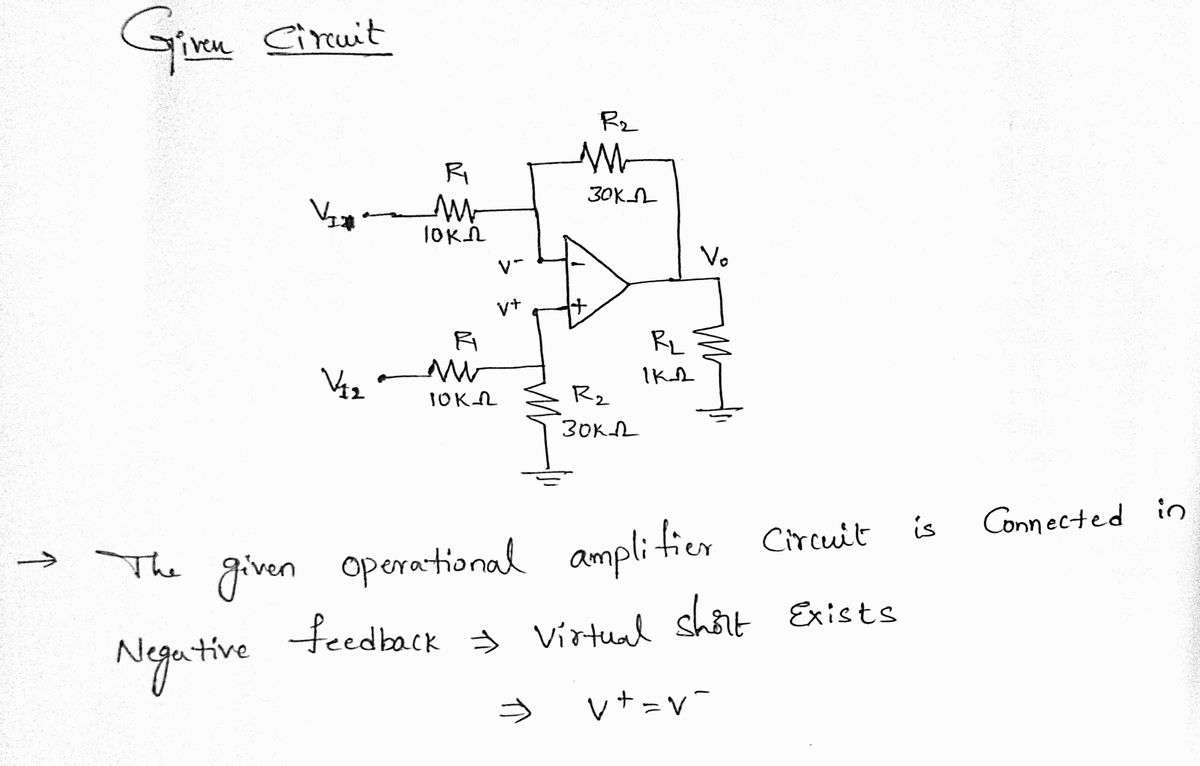 Given Circuit
R2
R1
30KΩ
VI
10KΩ
V-
Vo
V+
R1
RL
VI2
1KΩ
10KΩ
R2
30KΩ
→ The given operational amplifier Circuit is Connected in
Negative feedback ⇒ Virtual short Exists
⇒ V+ = V-